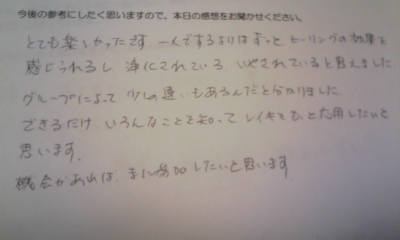 今後の参考にしたく思いますので、本日の感想をお聞かせください。
とても楽しかったです。一人でするよりはずっと ヒーリングの効果を
感じられるし 浄化されている いやされていると思えました
グループによって 少しの違いもあるんだと分かりました
できるだけ いろんなことを知って レイキをもっと応用したいと
思います。
機会があれば、また参加したいと思います